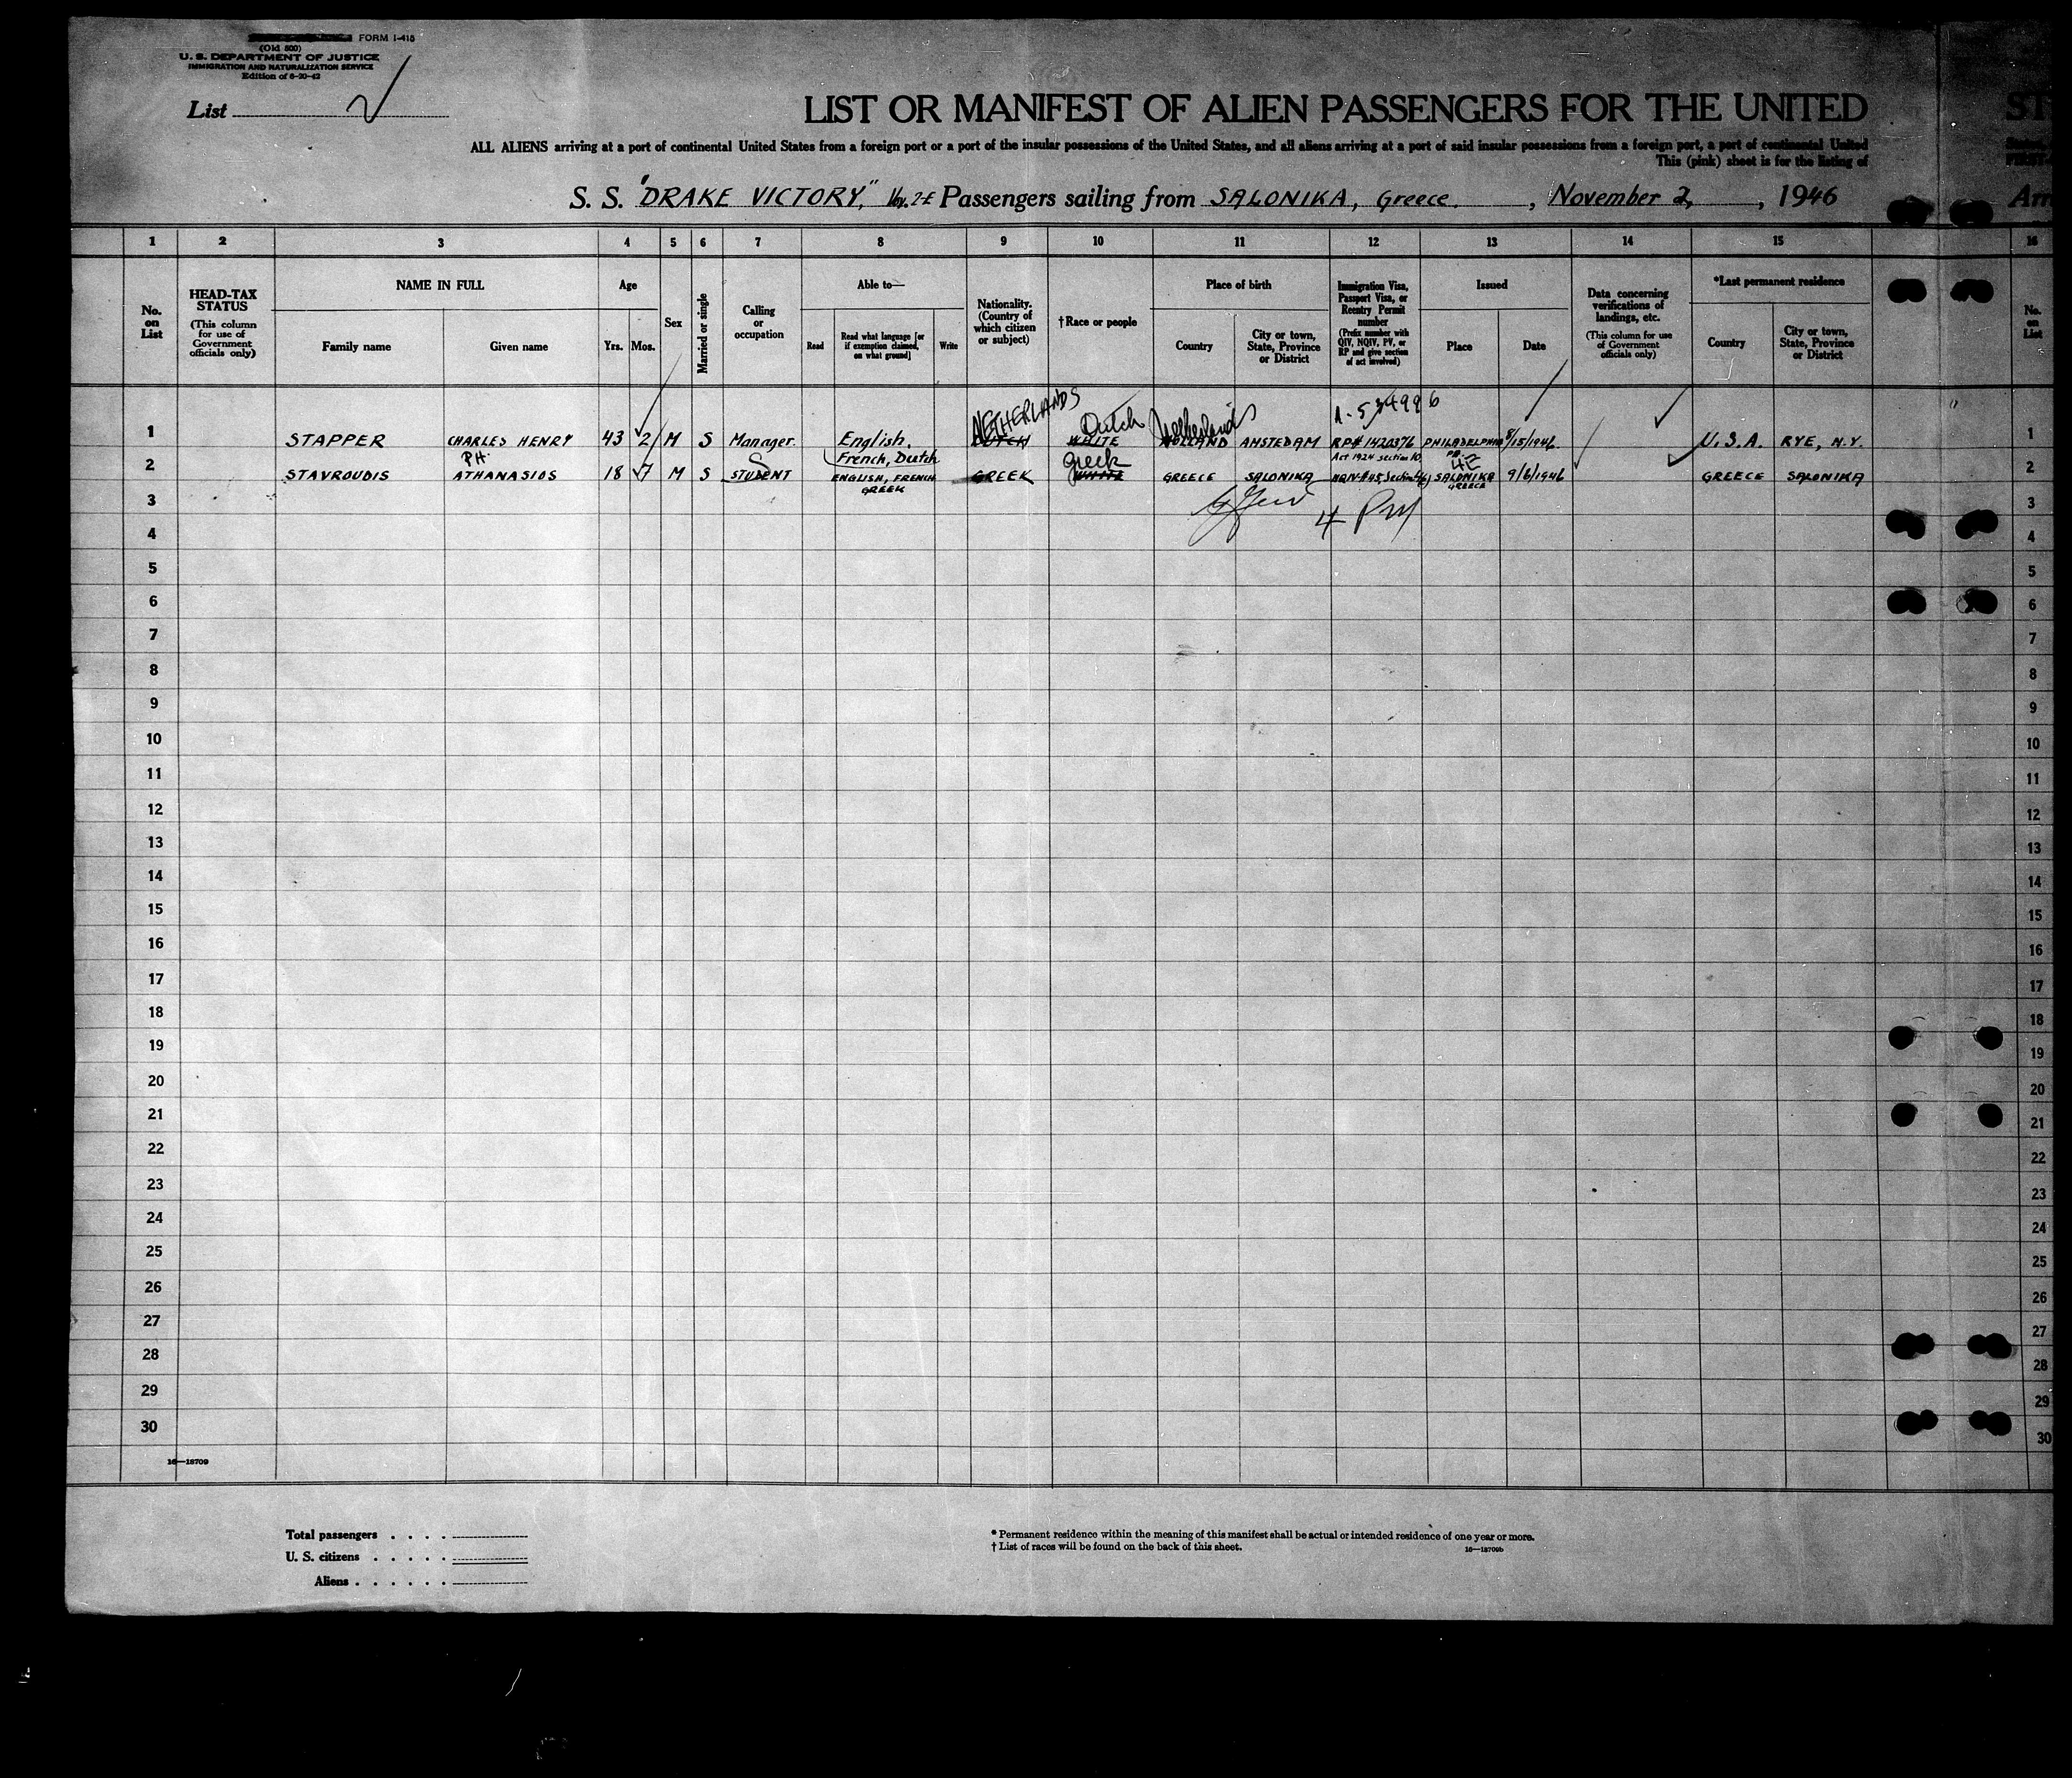 FORM I-415
(Old 500)
U. S. DEPARTMENT OF JUSTICE
IMMIGRATION AND NATURALIZATION SERVICE
Edition of 6-20-42
List
LIST OR MANIFEST OF ALIEN PASSENGERS FOR THE UNITED ST
ALL ALIENS arriving at a port of continental United States from a foreign port or a port of the insular possessions of the United States, and all aliens arriving at a port of said insular possessions from a foreign port, a port of continental United
This (pink) sheet is for the listing of
S. S. "DRAKE VICTORY," Passengers sailing from SALONIKA, Greece, November 2, 1946
1 2 3 4 5 6 7 8 9 10 11 12 13 14 15 16
No. on List
HEAD-TAX STATUS
(This column for use of Government officials only)
NAME IN FULL
Family name
Given name
Age
Yrs.
Mos.
Sex
Married or single
Calling or occupation
Able to—
Read
Read what language [or if exemption claimed, on what ground]
Write
Nationality. (Country of which citizen or subject)
†Race or people
Place of birth
Country
City or town, State, Province or District
Immigration Visa, Passport Visa, or Reentry Permit number
(Prefix number with QIV, NQIV, PV, or RP and give section of act involved)
Issued
Place
Date
Data concerning verifications of landings, etc.
(This column for use of Government officials only)
*Last permanent residence
Country
City or town, State, Province or District
No. on List
NETHERLANDS Dutch Netherlands
1 STAPPER CHARLES HENRY 43 2 M S Manager. English, DUTCH WHITE HOLLAND AMSTEDAM RP# 1420376 PHILADELPHIA 8/15/1946 U.S.A. RYE, N.Y. 1
PH. French, Dutch Greek Act 1924 section 10 PA.
2 STAVROUDIS ATHANASIOS 18 7 M S STUDENT ENGLISH, FRENCH GREEK GREEK WHITE GREECE SALONIKA SALONIKA GREECE 9/6/1946 GREECE SALONIKA 2
3 3
4 4 PM 4
5 5
6 6
7 7
8 8
9 9
10 10
11 11
12 12
13 13
14 14
15 15
16 16
17 17
18 18
19 19
20 20
21 21
22 22
23 23
24 24
25 25
26 26
27 27
28 28
29 29
30 30
16—18709
Total passengers . . . .
U. S. citizens . . . . .
Aliens . . . . . .
* Permanent residence within the meaning of this manifest shall be actual or intended residence of one year or more.
† List of races will be found on the back of this sheet.
16—18709b